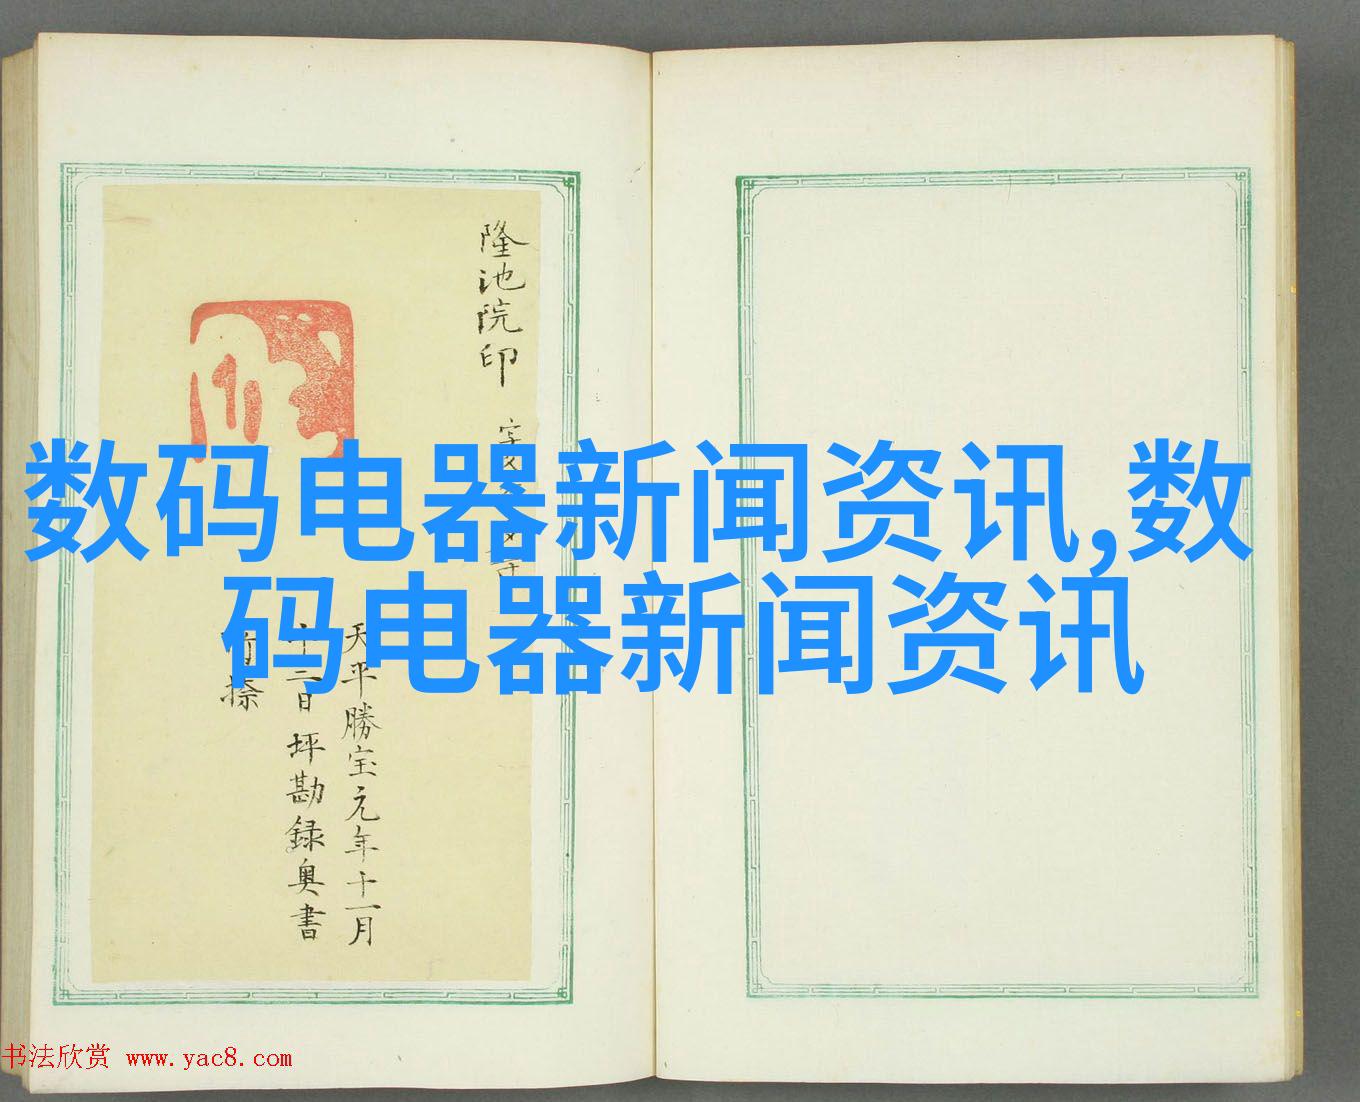 隆池院印
天平勝宝元年十一月
十二日坪勘録奥書
所捺
数码电器新闻资讯,数
码电器新闻资讯
书法欣赏 www.yac8.com